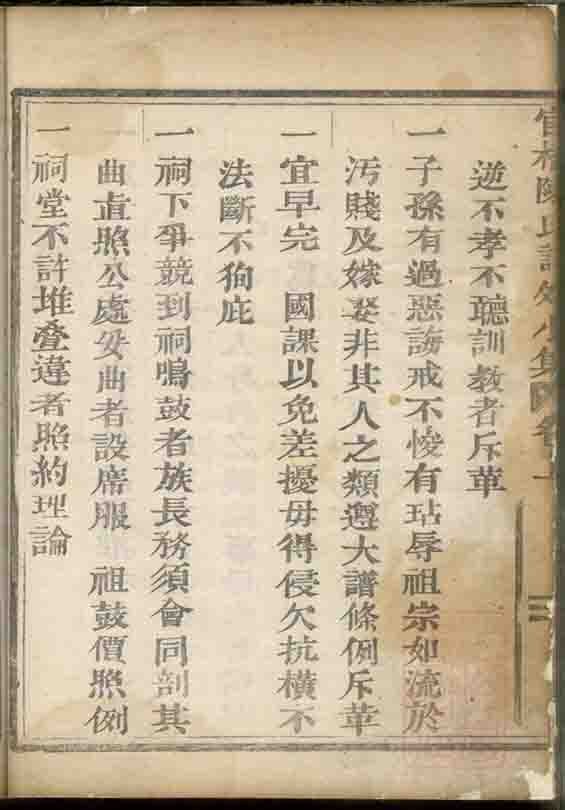 逆不孝不聽訓教者斥革
一子孫有過惡誨戒不悛有玷辱祖宗如流於
汚賤及嫁娶非其人之類遵大譜條例斥革
一宜早完　國課以免差擾毋得侵欠抗橫不
法斷不狥庇
一祠下爭競到祠鳴鼓者族長務須會同剖其
曲直照公處妥曲者設席服　祖鼓價照例
一祠堂不許堆疊違者照約理論